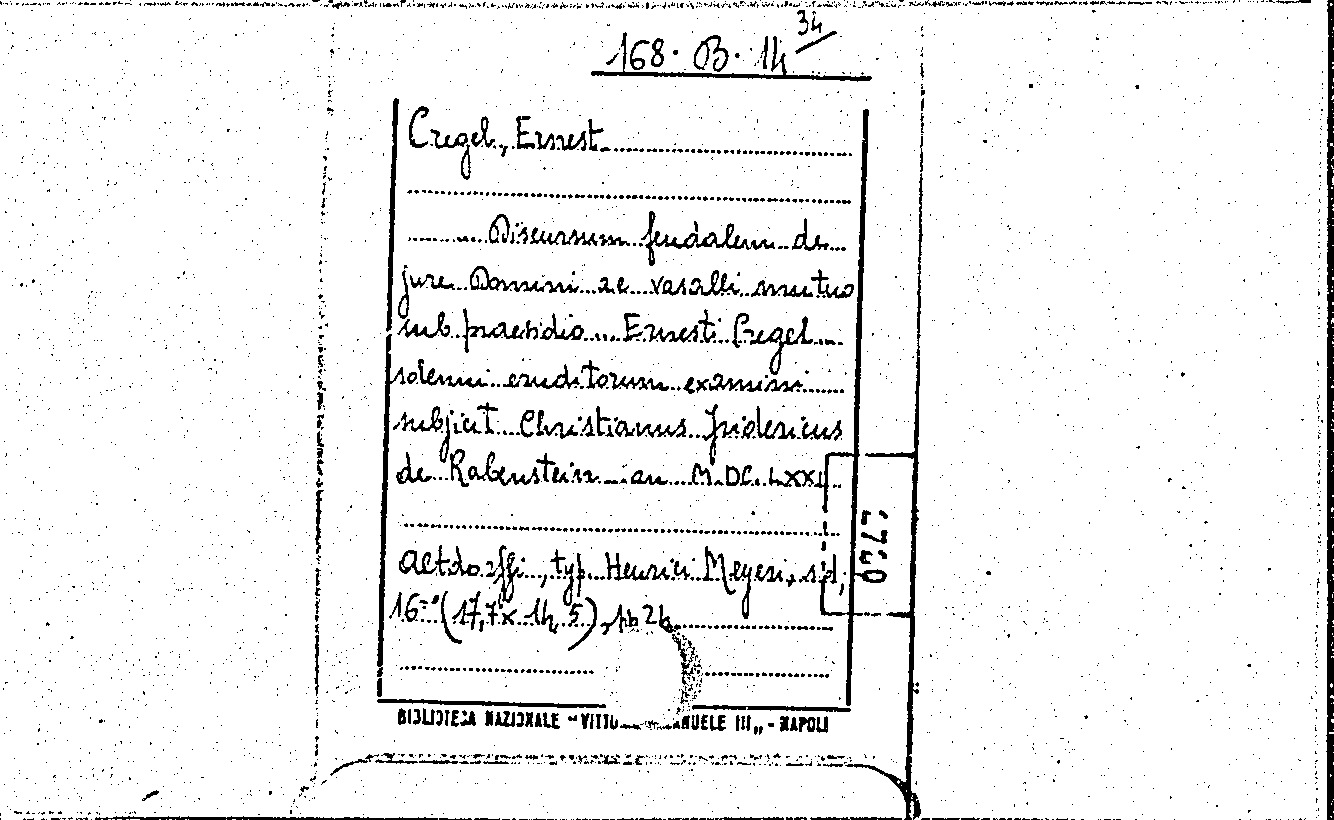 168. B. 14 34
Cregel, Ernest
Discursum feudalem de
jure Domini ac vasalli mutuo
sub praesidio ... Ernesti Cregel
solemni eruditorum examini
subjicit Christianus Fridericus
de Rabenstein ... an M.DC.LXXI
Altdorffi, typ. Henrici Meyeri, s.d,
16-° (17,7 x 14,5), pp 24
BIBLIOTECA NAZIONALE "VITTO ANUELE III„ - NAPOLI